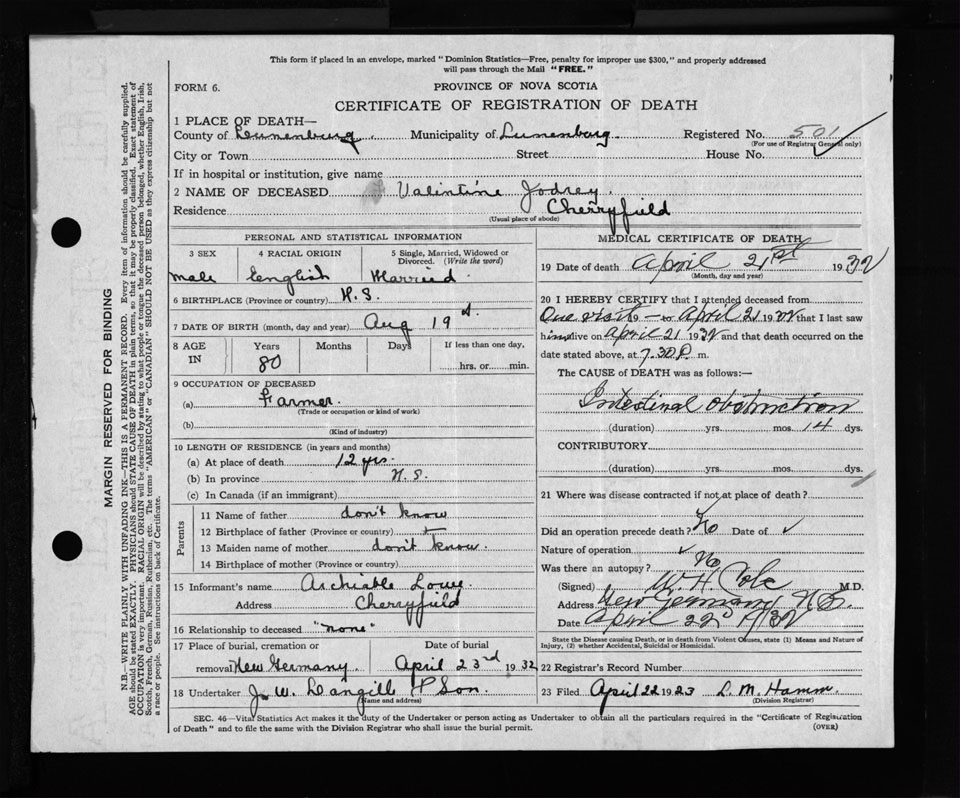 This form if placed in an envelope, marked "Dominion Statistics—Free, penalty for improper use $300," and properly addressed
will pass through the Mail "FREE."
FORM 6.
PROVINCE OF NOVA SCOTIA
CERTIFICATE OF REGISTRATION OF DEATH
1 PLACE OF DEATH—
County of Lunenburg Municipality of Lunenburg Registered No. 501
(For use of Registrar General only)
City or Town Street House No.
If in hospital or institution, give name
2 NAME OF DECEASED Valintine Jodrey
Residence Cherryfield
(Usual place of abode)
PERSONAL AND STATISTICAL INFORMATION
3 SEX 4 RACIAL ORIGIN 5 Single, Married, Widowed or
Divorced. (Write the word)
male English Married
6 BIRTHPLACE (Province or country) N.S.
7 DATE OF BIRTH (month, day and year) Aug 19
8 AGE IN Years Months Days If less than one day,
80 hrs. or min.
9 OCCUPATION OF DECEASED
(a) Farmer
(Trade or occupation or kind of work)
(b)
(Kind of industry)
10 LENGTH OF RESIDENCE (in years and months)
(a) At place of death 12 yrs.
(b) In province N.S.
(c) In Canada (if an immigrant)
Parents
11 Name of father don't know
12 Birthplace of father (Province or country)
13 Maiden name of mother don't know.
14 Birthplace of mother (Province or country)
15 Informant's name Archiable Lowe
Address Cherryfield
16 Relationship to deceased "none"
17 Place of burial, cremation or Date of burial
removal New Germany April 23rd 1932
18 Undertaker J. W. Langill & Son.
(Name and address)
MEDICAL CERTIFICATE OF DEATH
19 Date of death April 21st 1932
(Month, day and year)
20 I HEREBY CERTIFY that I attended deceased from
One visit 19 — to April 21 1932 that I last saw
him alive on April 21 1932 and that death occurred on the
date stated above, at 7.30 P. m.
The CAUSE OF DEATH was as follows:—
Intestinal Obstruction
(duration) yrs. mos. 14 dys.
CONTRIBUTORY
(duration) yrs. mos. dys.
21 Where was disease contracted if not at place of death?
Did an operation precede death? No Date of ✓
Nature of operation ✓
Was there an autopsy? No
(Signed) W. H. Cole M.D.
Address New Germany N.S.
Date April 22d 1932
State the Disease causing Death, or in death from Violent Causes, state (1) Means and Nature of
Injury, (2) whether Accidental, Suicidal or Homicidal.
22 Registrar's Record Number
23 Filed April 22 1923 L. M. Hamm.
(Division Registrar)
SEC. 46—Vital Statistics Act makes it the duty of the Undertaker or person acting as Undertaker to obtain all the particulars required in the "Certificate of Registration
of Death" and to file the same with the Division Registrar who shall issue the burial permit.
(OVER)
MARGIN RESERVED FOR BINDING
N.B.—WRITE PLAINLY WITH UNFADING INK—THIS IS A PERMANENT RECORD. Every item of information should be carefully supplied.
AGE should be stated EXACTLY. PHYSICIANS should STATE CAUSE OF DEATH in plain terms, so that it may be properly classified. Exact statement of
OCCUPATION is very important. RACIAL ORIGIN will be described by stating to what people or tongue the deceased person belonged, whether English, Irish,
Scotch, French, German, Russian, Ruthenian, etc. The terms "AMERICAN" or "CANADIAN" SHOULD NOT BE USED as they express citizenship but not
a race or people. See instructions on back of Certificate.